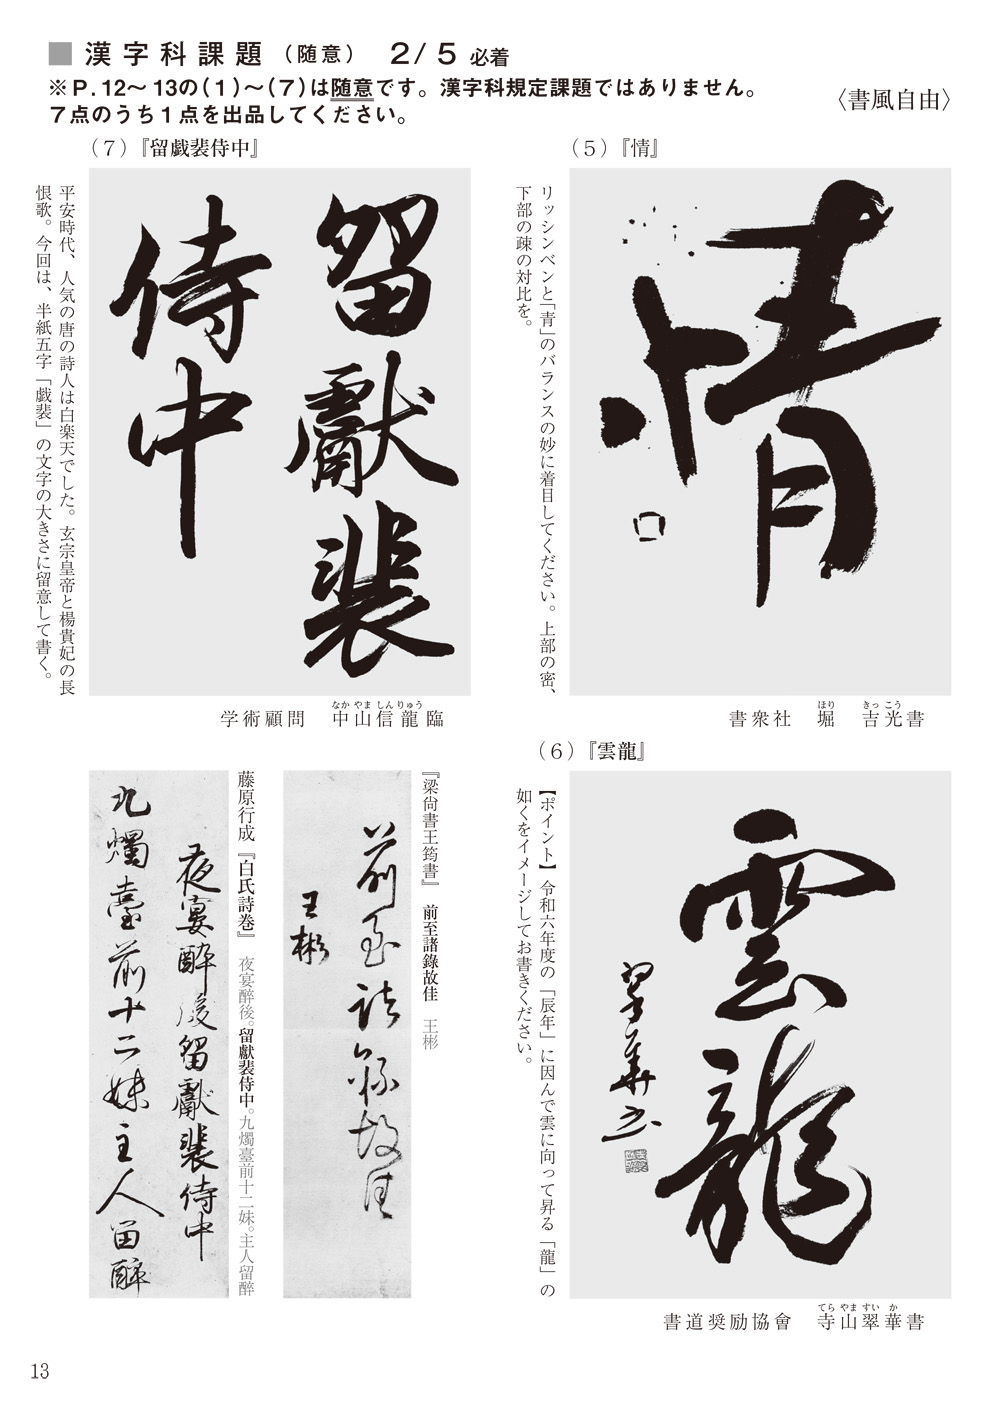 ■漢字科課題（随意） 2/5 必着
※P.12～13の(1)～(7)は随意です。漢字科規定課題ではありません。
7点のうち1点を出品してください。
〈書風自由〉
(5)『情』
リッシンベンと「青」のバランスの妙に着目してください。上部の密、
下部の疎の対比を。
情
書衆社 堀 吉光書
ほり きっこう
(6)『雲龍』
【ポイント】令和六年度の「辰年」に因んで雲に向って昇る「龍」の
如くをイメージしてお書きください。
雲龍
翠華書
書道奨励協會 寺山翠華書
てらやますいか
(7)『留戯裴侍中』
留獻裴
侍中
平安時代、人気の唐の詩人は白楽天でした。玄宗皇帝と楊貴妃の長
恨歌。今回は、半紙五字「戯裴」の文字の大きさに留意して書く。
学術顧問 中山信龍臨
なかやましんりゅう
『梁尙書王筠書』 前至諸錄故佳 王彬
前至諸錄故佳
王彬
藤原行成『白氏詩巻』 夜宴醉後。留獻裴侍中。九燭臺前十二妹。主人留醉
夜宴酔後留獻裴侍中
九燭臺前十二妹主人留酔
13